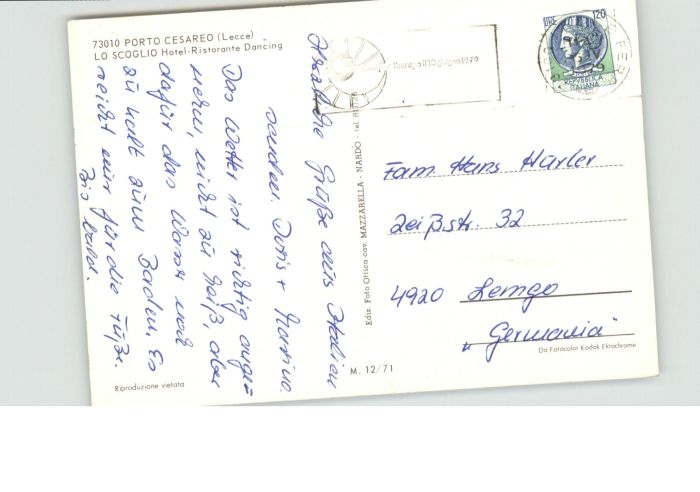 73010 PORTO CESAREO (Lecce)
LO SCOGLIO Hotel-Ristorante Dancing
Herzliche Grüße aus Italien
senden. Doris + Massimo.
Das Wetter ist richtig ange-
nehm, nicht zu heiß, aber
dafür das Wasser noch
zu kalt zum Baden. Es
reicht nur für die Füße.
Bis bald.
Riproduzione vietata
Ediz. Foto Ottica cav. MAZZABELLA - NARDO - tel.
M. 12/71
giugno 1979
LIRE 120
REPVBBLICA
ITALIANA
Fam. Hans Hürler
Zeißstr. 32
4920 Lemgo
„Germania"
Da Fotocolor Kodak Ektachrome